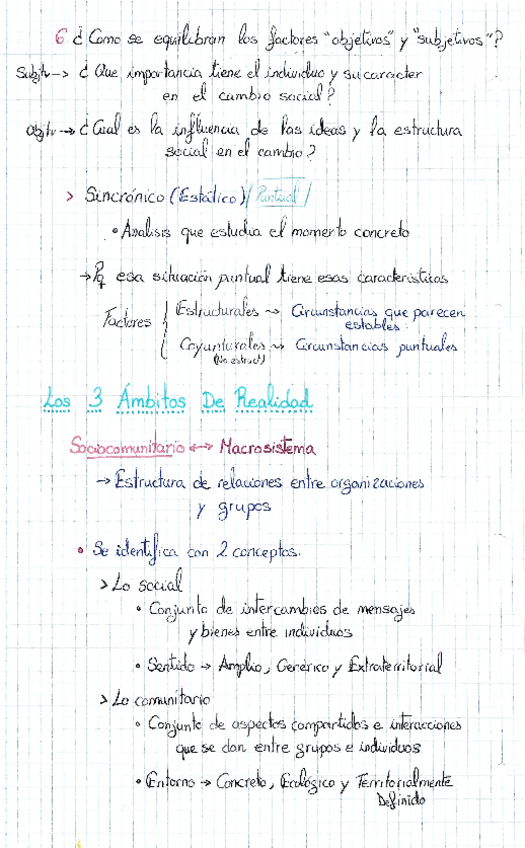 6. ¿ Como se equilibran los factores "objetivos" y "subjetivos"?
Subjtv -> ¿ Que importancia tiene el individuo y su caracter
en el cambio social?
Objtv -> ¿ Cual es la influencia de las ideas y la estructura
social en el cambio?
> Sincrónico (Estático) / Puntual /
• Analisis que estudia el momento concreto
-> Pq esa situación puntual tiene esas caracteristicas
Factores { Estructurales ~> Circunstancias que parecen
estables.
Coyunturales ~> Circunstancias puntuales
(No estruct)
Los 3 Ámbitos De Realidad
Sociocomunitario <-> Macrosistema
-> Estructura de relaciones entre organizaciones
y grupos
• Se identifica con 2 conceptos.
> Lo social
• Conjunto de intercambios de mensajes
y bienes entre individuos
• Sentido -> Amplio, Genérico y Extraterritorial
> Lo comunitario
• Conjunto de aspectos compartidos e interacciones
que se dan entre grupos e individuos
• Entorno -> Concreto, Ecológico y Territorialmente
Definido